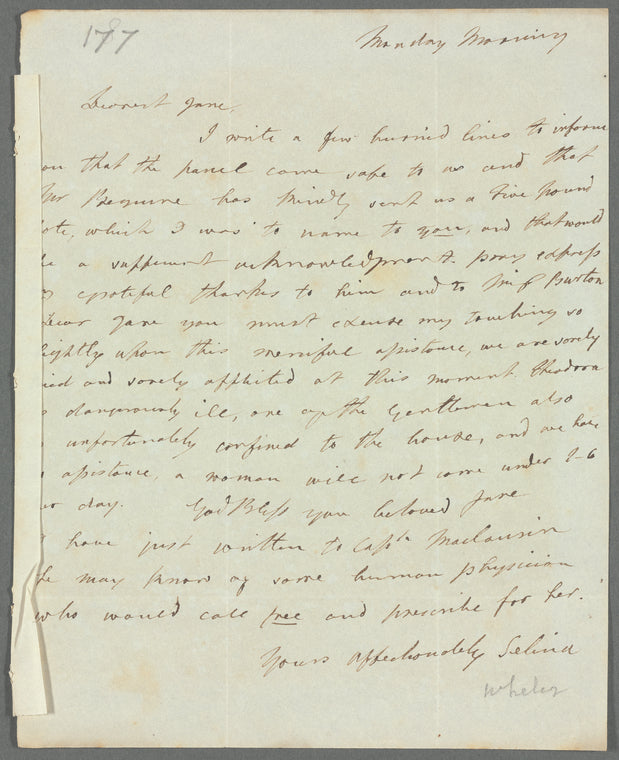 1787
Monday Morning
Dearest Jane,
I write a few hurried lines to inform
ou that the parcel came safe to us and that
Mr has kindly sent us a Five Pound
ote, which I was to name to you, and that would
be a sufficient acknowledgment. pray express
my grateful thanks to him and to Miſs Burton
Dear Jane you must excuse my touching so
lightly upon this merciful aſsistance, we are sorely
ried and sorely afflicted at this moment. Theodora
is dangerously ill, one of the Gentlemen also
unfortunately confined to the house, and we have
aſsistance, a woman will not come under 2-6
er day. God Bleſs you beloved Jane
I have just written to Captn Maclausin
he may know of some human physician
who would call free and prescribe for her.
Yours affectionately Selina
Wheler